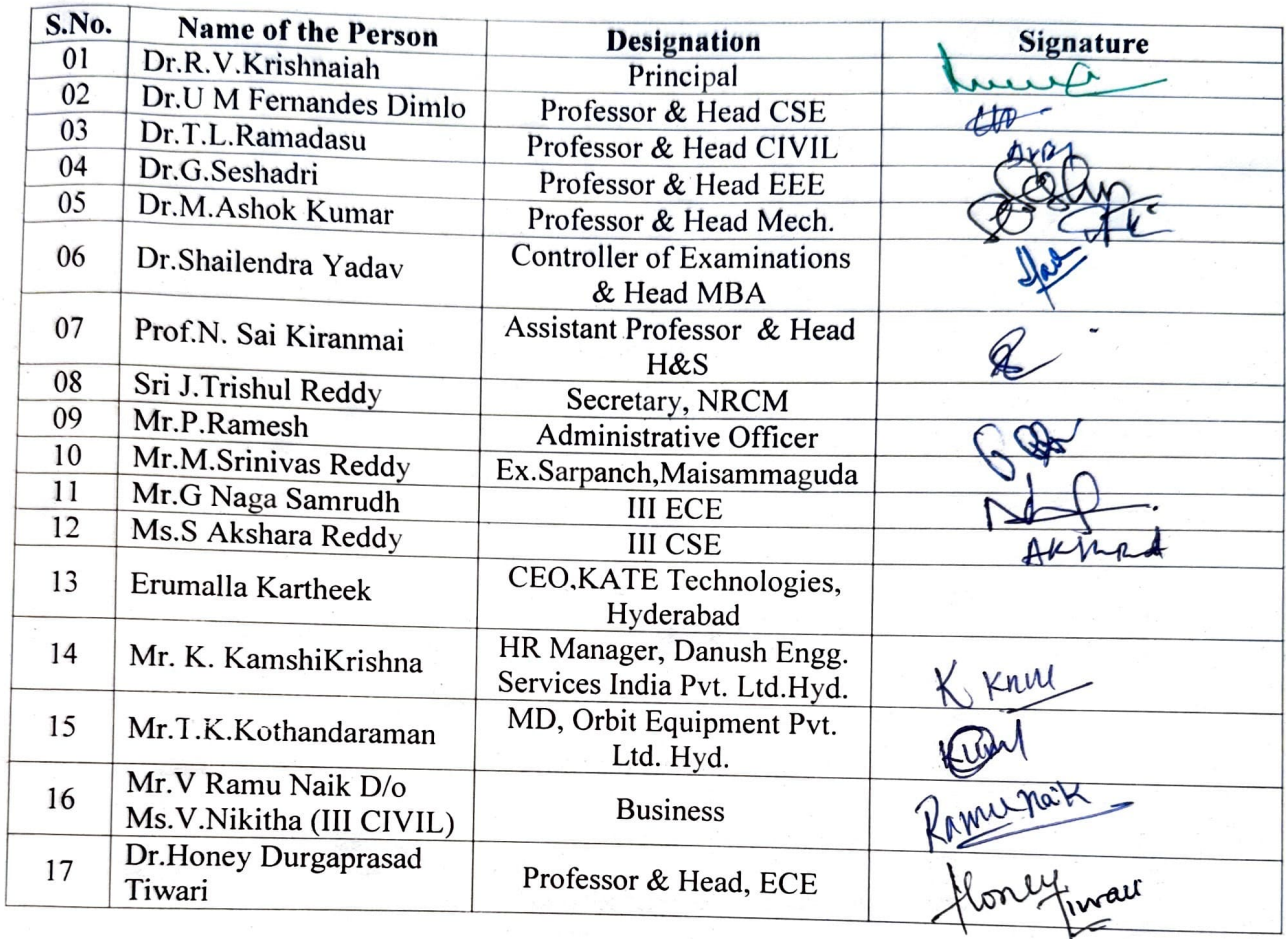 S.No. Name of the Person Designation Signature
01 Dr.R.V.Krishnaiah Principal
02 Dr.U M Fernandes Dimlo Professor & Head CSE
03 Dr.T.L.Ramadasu Professor & Head CIVIL
04 Dr.G.Seshadri Professor & Head EEE
05 Dr.M.Ashok Kumar Professor & Head Mech.
06 Dr.Shailendra Yadav Controller of Examinations
& Head MBA
07 Prof.N. Sai Kiranmai Assistant Professor & Head
H&S
08 Sri J.Trishul Reddy Secretary, NRCM
09 Mr.P.Ramesh Administrative Officer
10 Mr.M.Srinivas Reddy Ex.Sarpanch,Maisammaguda
11 Mr.G Naga Samrudh III ECE
12 Ms.S Akshara Reddy III CSE
13 Erumalla Kartheek CEO,KATE Technologies,
Hyderabad
14 Mr. K. KamshiKrishna HR Manager, Danush Engg.
Services India Pvt. Ltd.Hyd.
15 Mr.T.K.Kothandaraman MD, Orbit Equipment Pvt.
Ltd. Hyd.
16 Mr.V Ramu Naik D/o
Ms.V.Nikitha (III CIVIL) Business Ramu naik
17 Dr.Honey Durgaprasad
Tiwari Professor & Head, ECE Honey
Tiwari